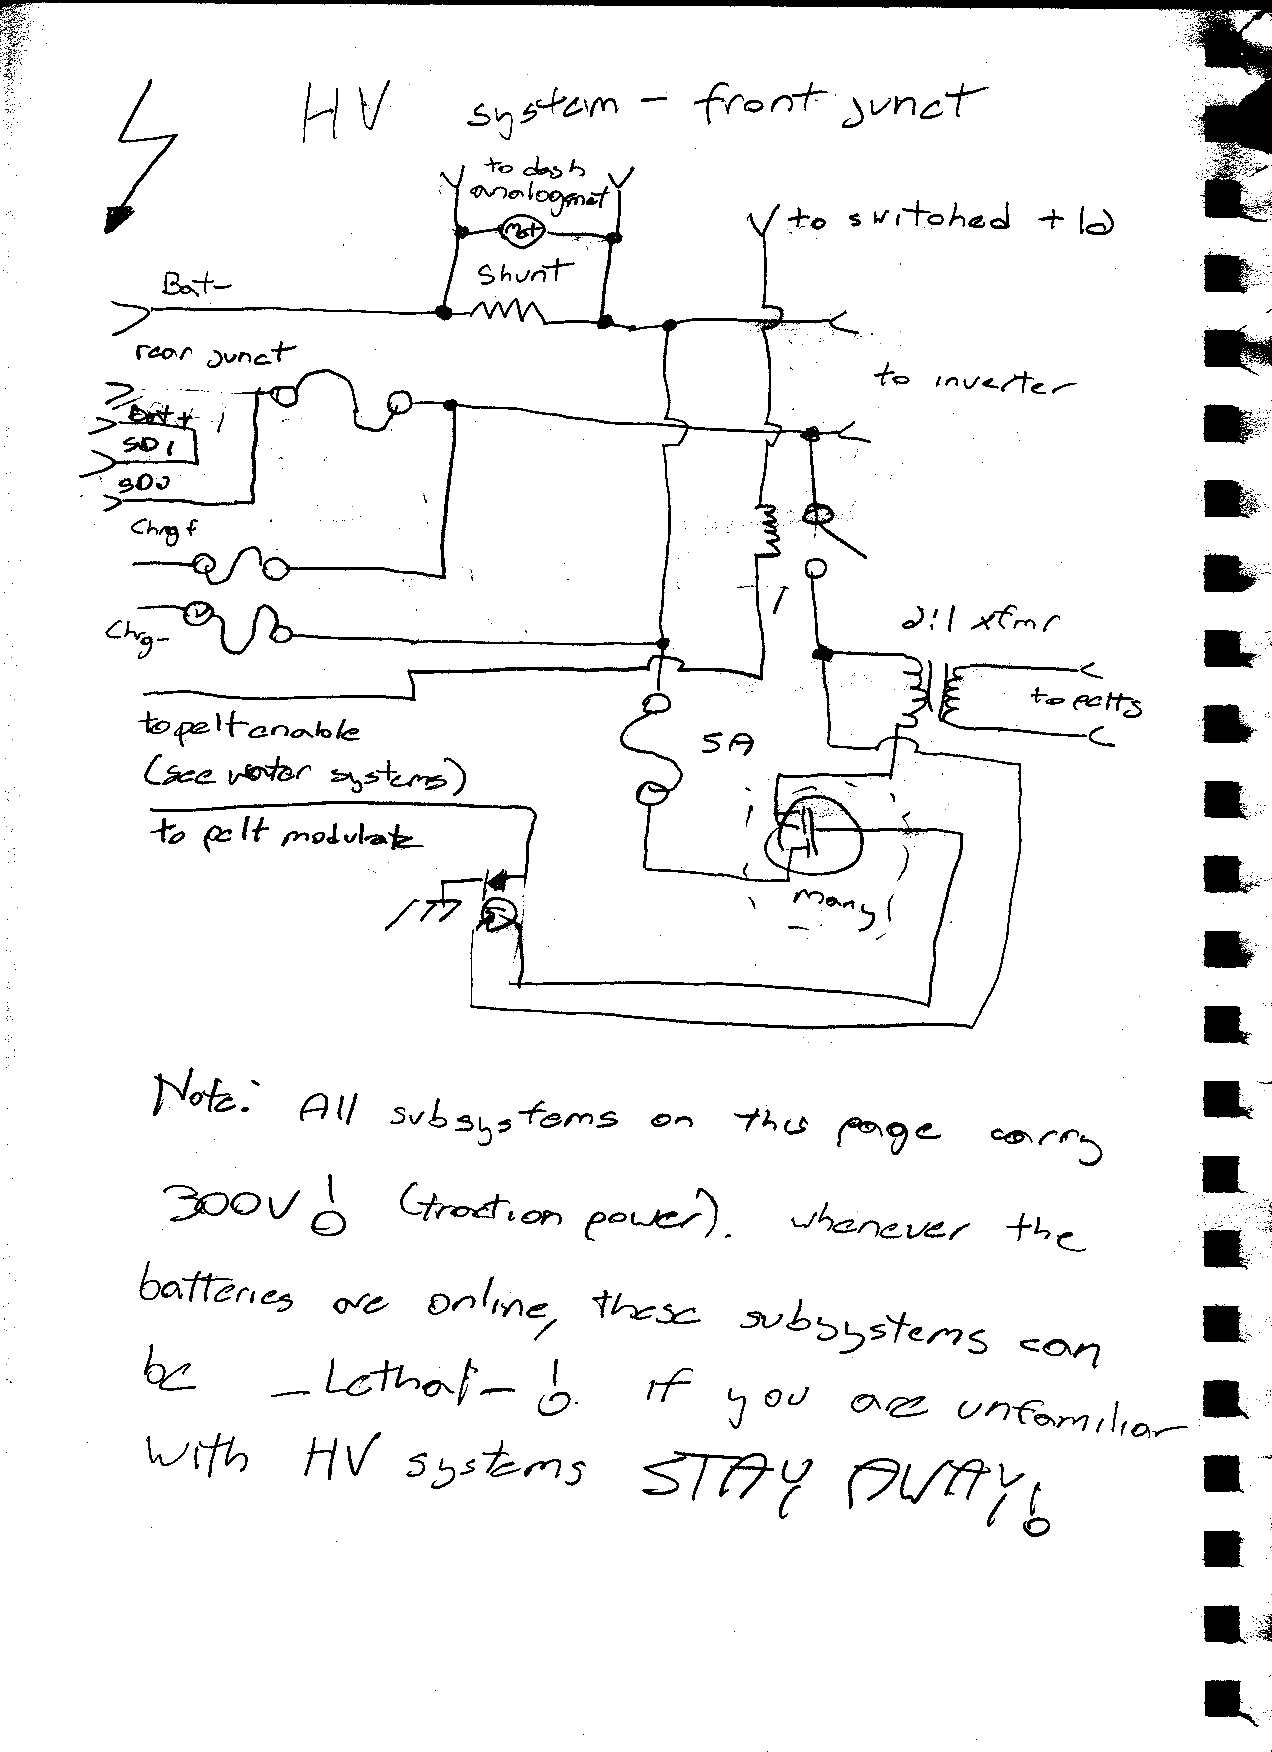 HV system - front junct
to dash
analog met
Met
to switched +12
Shunt
Bat-
rear junct
to inverter
Bat+
SD1
SD2
Chrg+
2:1 xfmr
Chrg-
to pelts
to pelt enable
5A
(see water systems)
to pelt modulate
many!
Note: All subsystems on this page carry
300V! (traction power). whenever the
batteries are online, these subsystems can
be -Lethal-! if you are unfamiliar
with HV systems STAY AWAY!